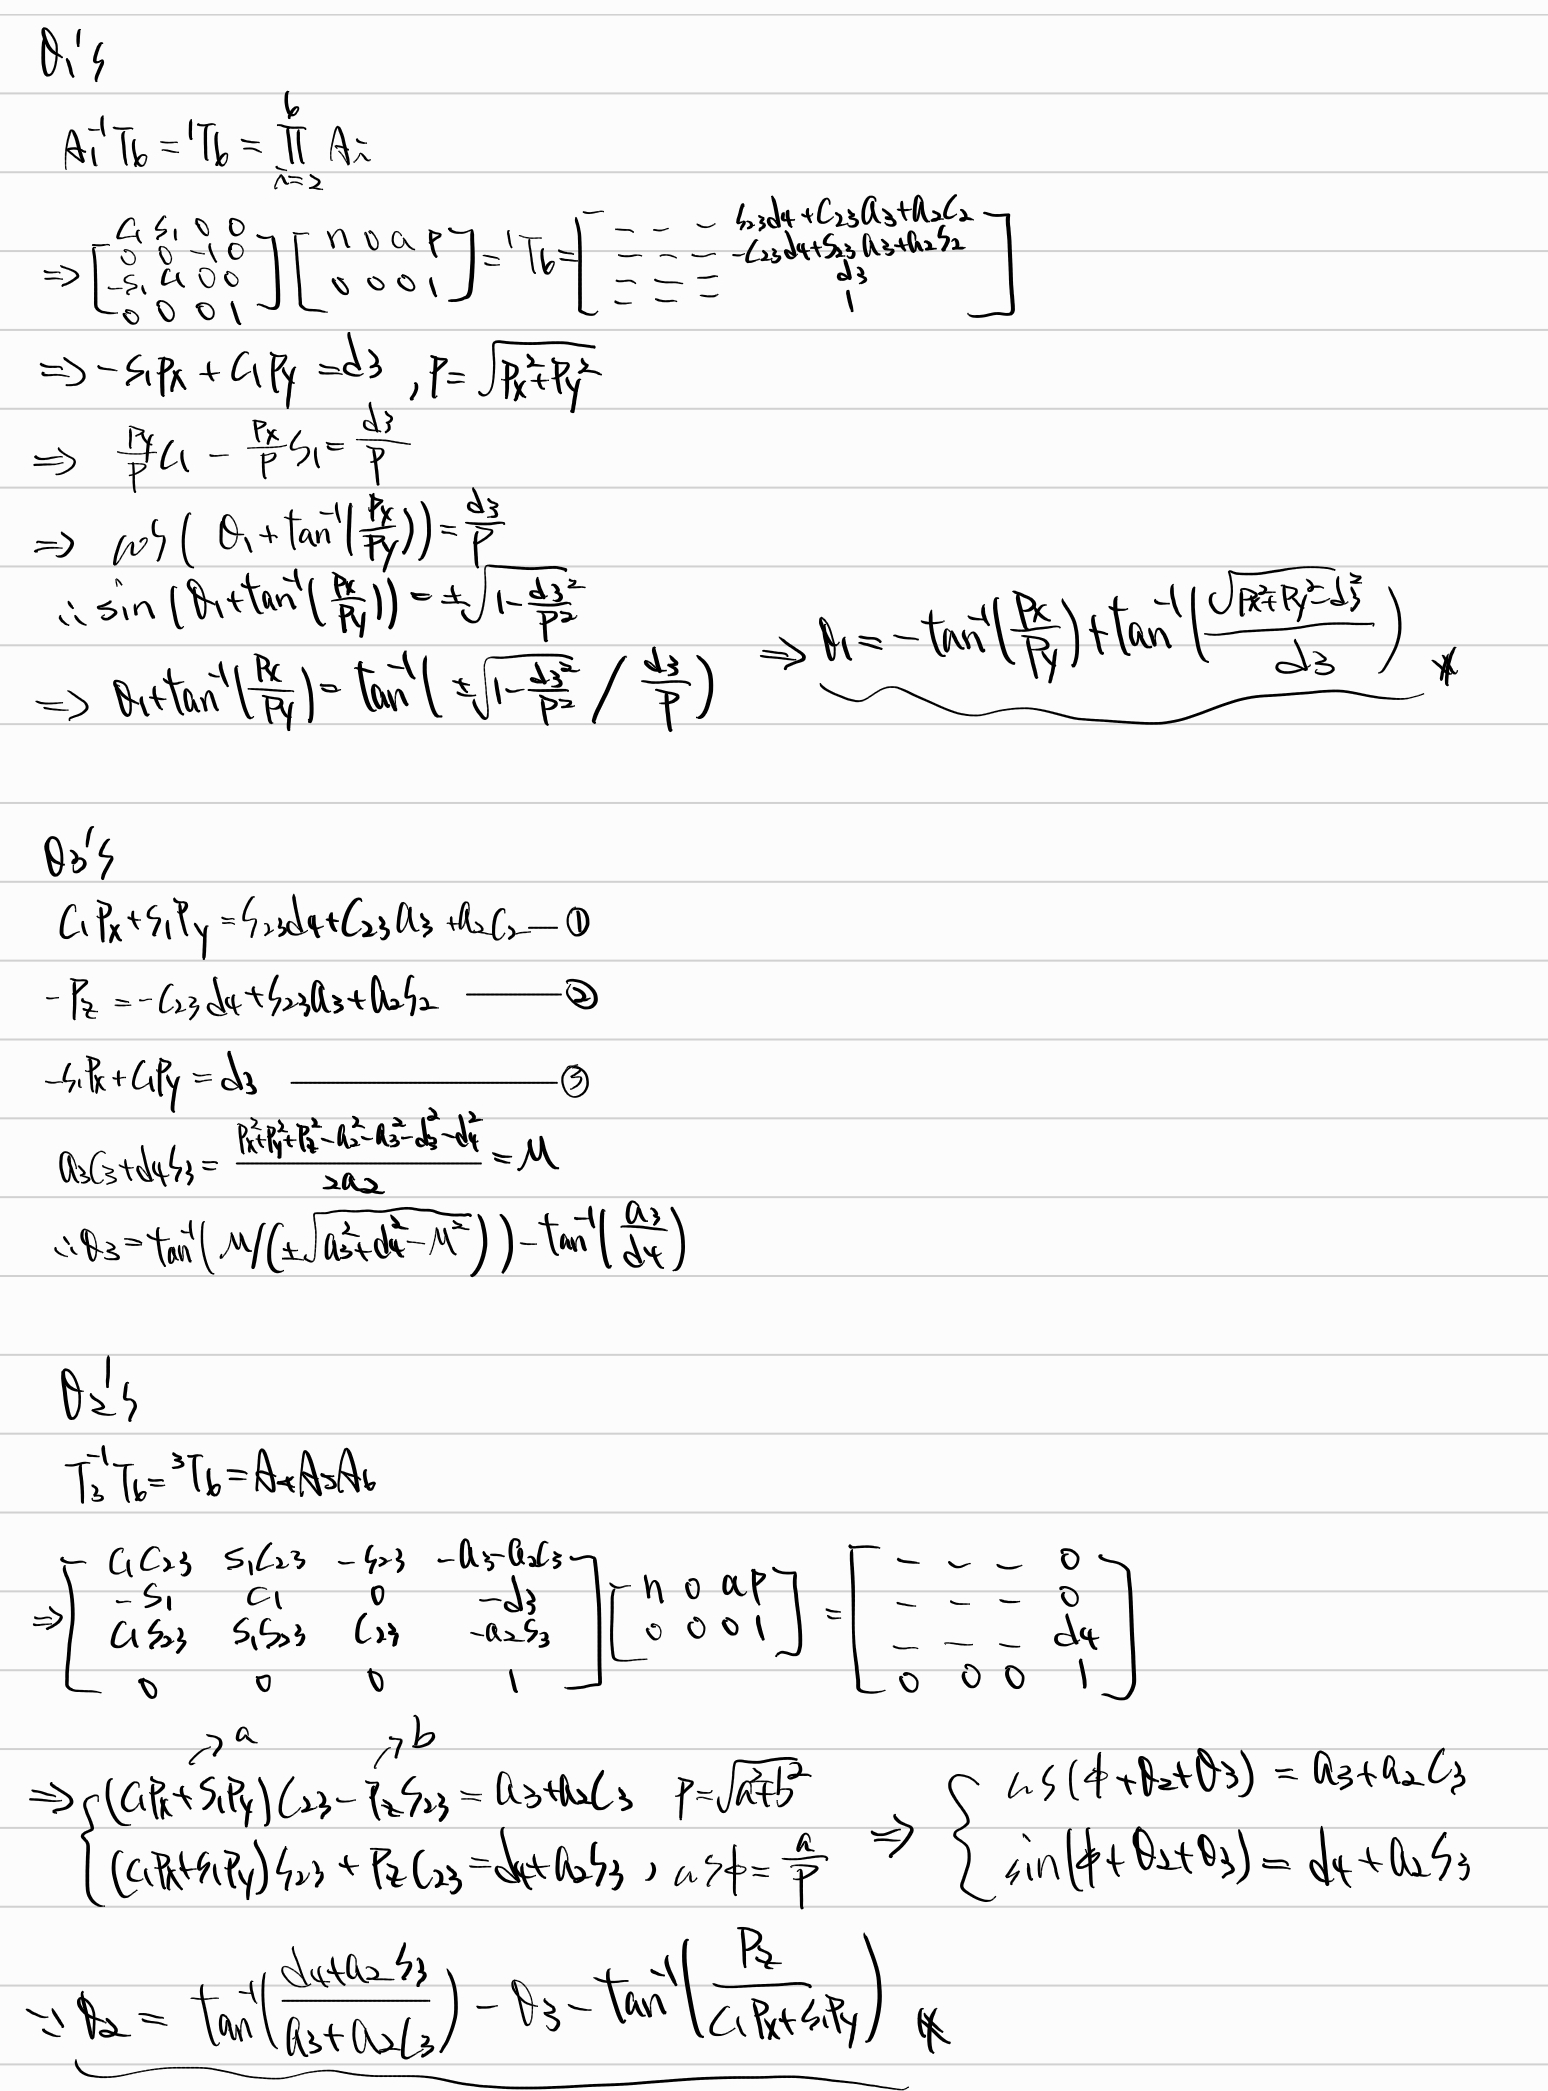 θ₁'s
A₁⁻¹T₆ = ¹T₆ = ∏_{i=2}^{6} Aᵢ
⇒ [C₁ S₁ 0 0; 0 0 -1 0; -S₁ C₁ 0 0; 0 0 0 1] [n o a p; 0 0 0 1] = ¹T₆ = [- - - S₂₃d₄+C₂₃a₃+a₂C₂; - - - -C₂₃d₄+S₂₃a₃+a₂S₂; - - - d₃; - - - 1]
⇒ -S₁Px + C₁Py = d₃ , P = √(Px²+Py²)
⇒ Py/P C₁ - Px/P S₁ = d₃/P
⇒ cos(θ₁+tan⁻¹(Px/Py)) = d₃/P
∴ sin(θ₁+tan⁻¹(Px/Py)) = ±√(1-d₃²/P²)
⇒ θ₁+tan⁻¹(Px/Py) = tan⁻¹(±√(1-d₃²/P²) / d₃/P)
⇒ θ₁ = -tan⁻¹(Px/Py)+tan⁻¹(√(Px²+Py²-d₃²)/d₃) *
θ₃'s
C₁Px+S₁Py = S₂₃d₄+C₂₃a₃+a₂C₂ — ①
-Pz = -C₂₃d₄+S₂₃a₃+a₂S₂ — ②
-S₁Px+C₁Py = d₃ — ③
a₃C₃+d₄S₃ = (Px²+Py²+Pz²-a₂²-a₃²-d₃²-d₄²)/2a₂ = M
∴ θ₃ = tan⁻¹(M/(±√(a₃²+d₄²-M²))) - tan⁻¹(a₃/d₄)
θ₂'s
T₃⁻¹T₆ = ³T₆ = A₄A₅A₆
⇒ [C₁C₂₃ S₁C₂₃ -S₂₃ -a₃-a₂C₃; -S₁ C₁ 0 -d₃; C₁S₂₃ S₁S₂₃ C₂₃ -a₂S₃; 0 0 0 1] [n o a p; 0 0 0 1] = [- - - 0; - - - 0; - - - d₄; 0 0 0 1]
↗a ↗b
⇒ { (C₁Px+S₁Py)C₂₃ - PzS₂₃ = a₃+a₂C₃ P = √(a²+b²)
(C₁Px+S₁Py)S₂₃ + PzC₂₃ = d₄+a₂S₃ , cosϕ = a/P
⇒ { cos(ϕ+θ₂+θ₃) = a₃+a₂C₃
sin(ϕ+θ₂+θ₃) = d₄+a₂S₃
∴ θ₂ = tan⁻¹((d₄+a₂S₃)/(a₃+a₂C₃)) - θ₃ - tan⁻¹(Pz/(C₁Px+S₁Py)) *